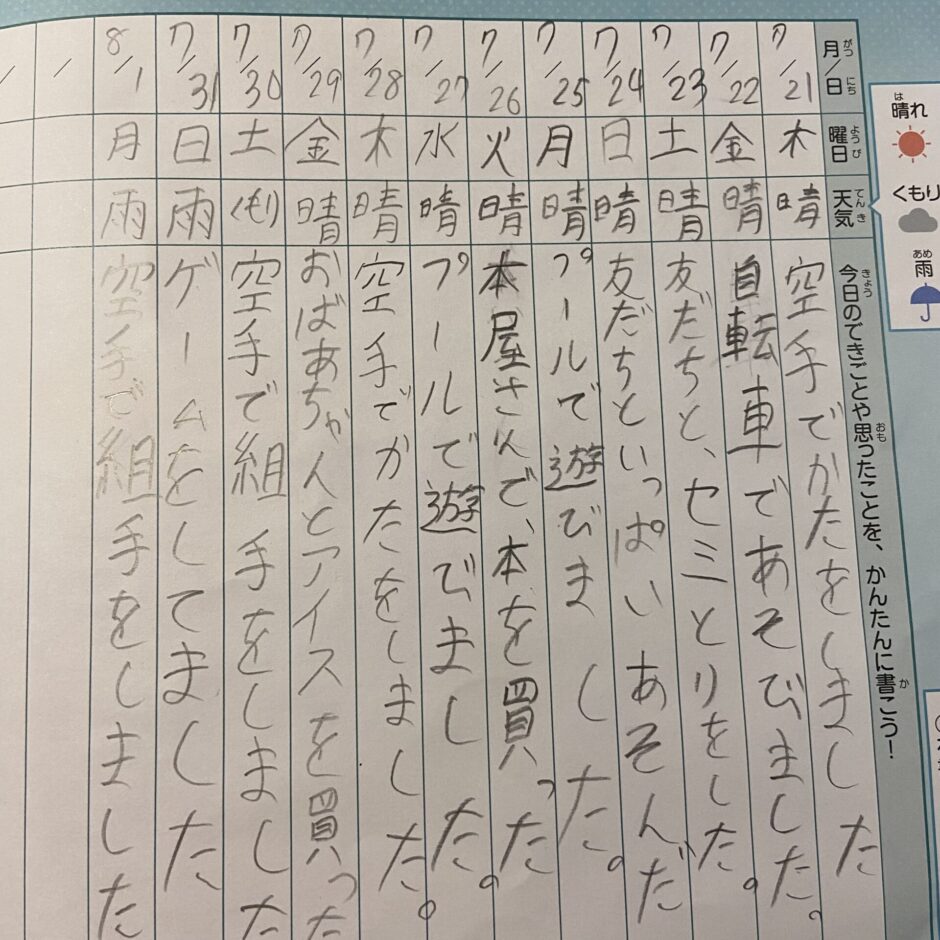 晴れ
は
くもり
雨
あめ
月/日
がつ
にち
曜日
ようび
天気
てんき
今日のできごとや思ったことを、かんたんに書こう！
きょう
おも
か
7/21 木 晴 空手でかたをしました
7/22 金 晴 自転車であそびました。
7/23 土 晴 友だちと、セミとりをした。
7/24 日 晴 友だちといっぱいあそんだ
7/25 月 晴 プールで遊びました。
7/26 火 晴 本屋さんで、本を買った
7/27 水 晴 プールで遊でました。
7/28 木 晴 空手でかたをしました。
7/29 金 晴 おばあちゃんとアイスを買った
7/30 土 くもり 空手で組手をしました
7/31 日 雨 ゲームをしてました
8/1 月 雨 空手で組手をしました
/
/